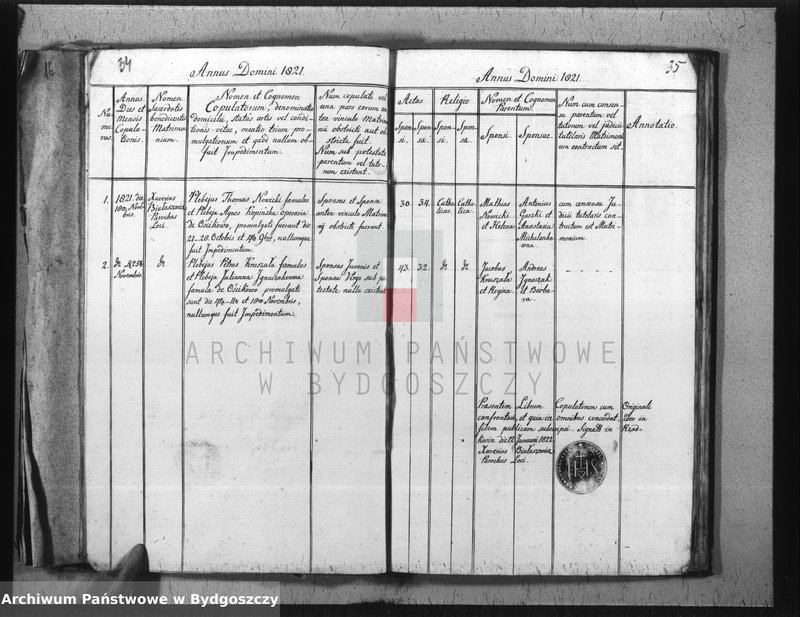 16
34
Annus Domini 1821.
Nu-
me-
rus.
Annus
Dies et
Mensis
Copula-
tionis.
Nomen
Sacerdotis
benedicentis
Matrimo-
nium.
Nomen et Cognomen
Copulatorum, denominatio
domicilii, status artis vel condi-
tionis vitae, mentio trium pro-
mulgationum et quod nullum ob-
fuit Impedimentum.
Num copulati vel
una pars eorum an-
tea vinculo Matrimo-
nii obstricti aut ob-
stricta fuit.
Num sub potestate
parentum vel tuto-
rum existunt.
1.
1821. die
18va Novem-
bris.
Xaverius
Białaszewicz
Parochus
Loci.
Plebejus Thomas Nowicki famulus
et Plebeja Agnes Kopinska operaria
de promulgati fuerunt die
21-28. Octobris et 4ta 9bris, nullumque
fuit Impedimentum.
Sponsus et Sponsa
antea vinculo Matrimo-
nij obstricti fuerunt.
2.
Novembris.
Plebejus Petrus Kruszała famulus
et Plebeja Julianna Ignaczakowna
famula de promulgati
sunt die 4ta-11a et 18va Novembris,
nullumque fuit Impedimentum.
Sponsus Juvenis et
Sponsa Virgo sub po-
testate nulla existunt
35
Annus Domini 1821.
Aetas
Spon-
si.
Spon-
sa.
Religio
Spon-
si.
Spon-
sa.
Nomen et Cognomen
Parentum.
Sponsi.
Sponsae.
Num cum consen-
su parentum vel
tutorum vel judicii
tutelaris Matrimoni-
um contractum sit.
Annotatio.
30.
34.
Catho-
licus.
Catho-
lica.
Mathias
Nowicki
et Helena
Antonius
Guzki et
Anastasia
Michalanko-
wna.
cum consensu Ju-
dicii tutelaris con-
tractum est Matri-
monium.
43.
32.
Jacobus
Kruszała
et Regina.
Andreas
Ignaczak
et Barba-
ra.
Praesentem Librum Copulatorum cum Originali
confrontavi, et quia in omnibus concordat, ideo in
fidem publicam subscripsi. Signatt in
die 12 Januarii 1822.
Xaverius Białaszewicz
Parochus Loci.
IHS
ARCHIWUM PAŃSTWOWE
W BYDGOSZCZY
Archiwum Państwowe w Bydgoszczy